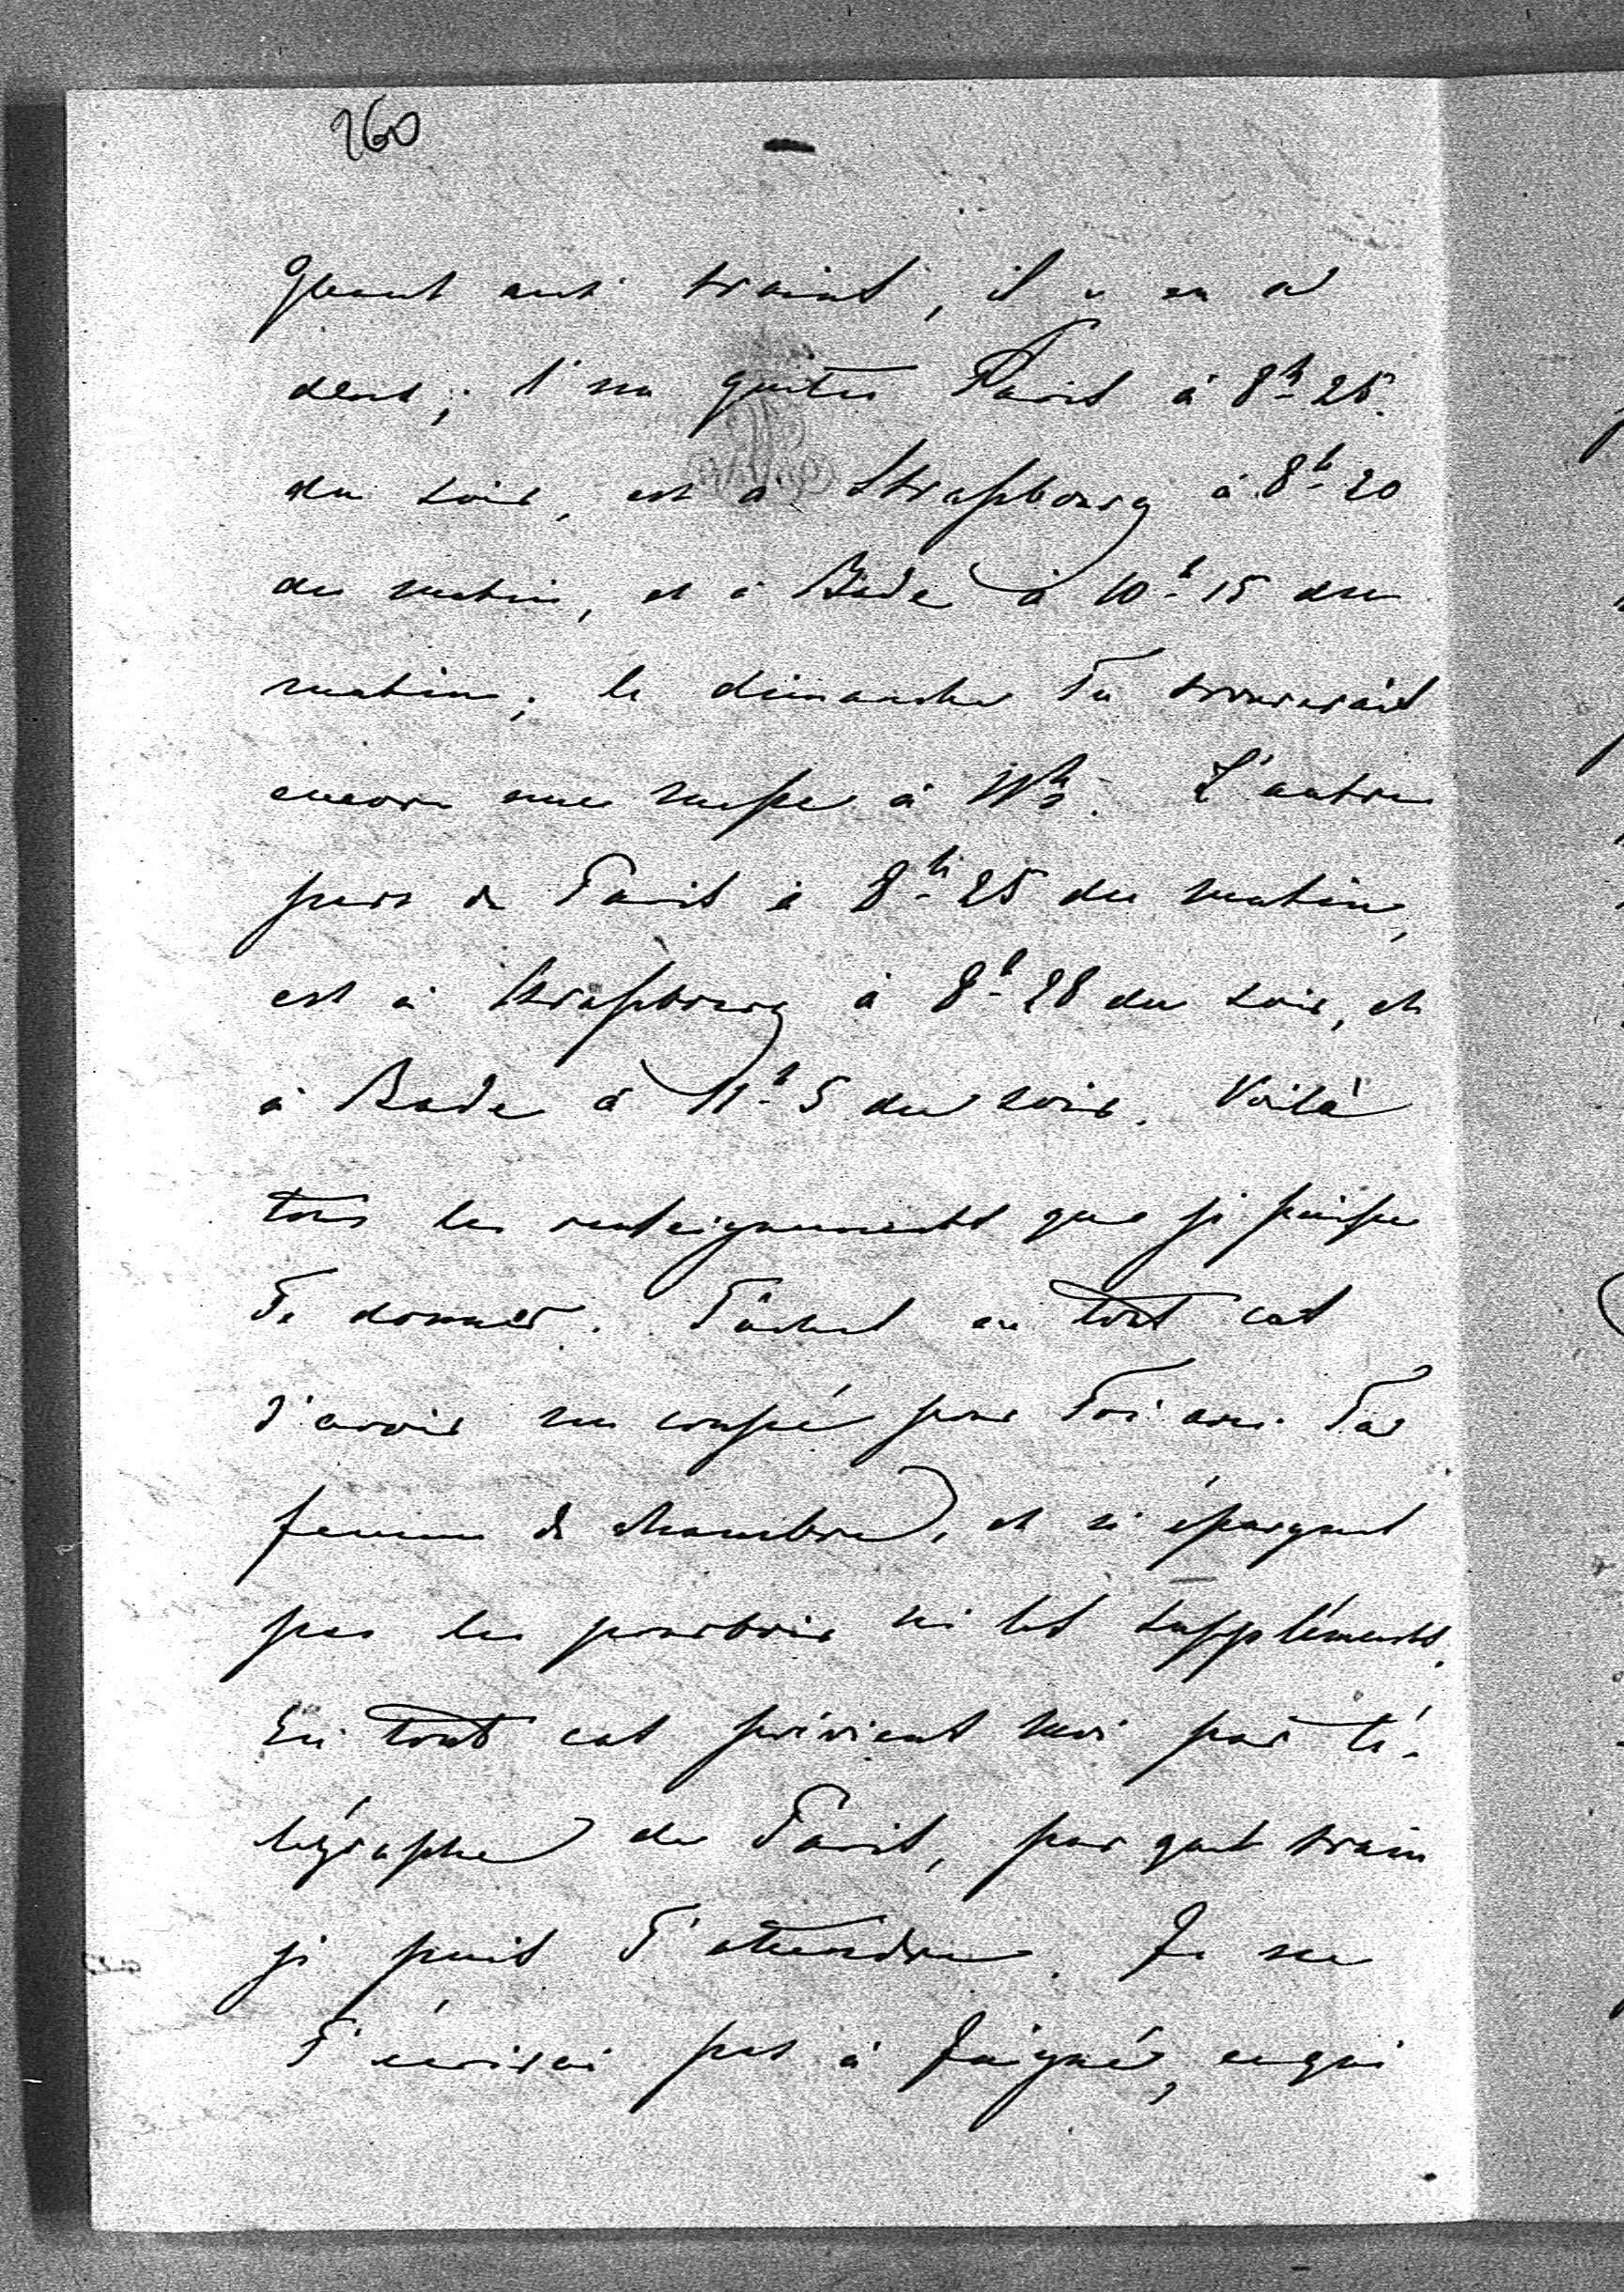 160
Quant aux trains, il y en a
deux; l'un quitte Paris à 8h 25.
du soir, est à Strasbourg à 8h 20
du matin, et à Bade à 10h 15 du
matin; le dimanche Tu trouverais
encore une messe à 11h. L'autre
part de Paris à 8h 25 du matin,
est à Strasbourg à 8h 28 du soir, et
à Bade à 11h 5 du soir. Voilà
tous les renseignements que je puisse
Te donner. Tâches en tout cas
d'avoir un coupé pour Toi avec Ta
femme de chambre, et n'épargnes
pas les pourboirs ni les suppléments.
En tout cas préviens moi par té-
légraphe de Paris, par quel train
je puis T'attendre. Je ne
T'écrirai pas à Juigné, ce qui